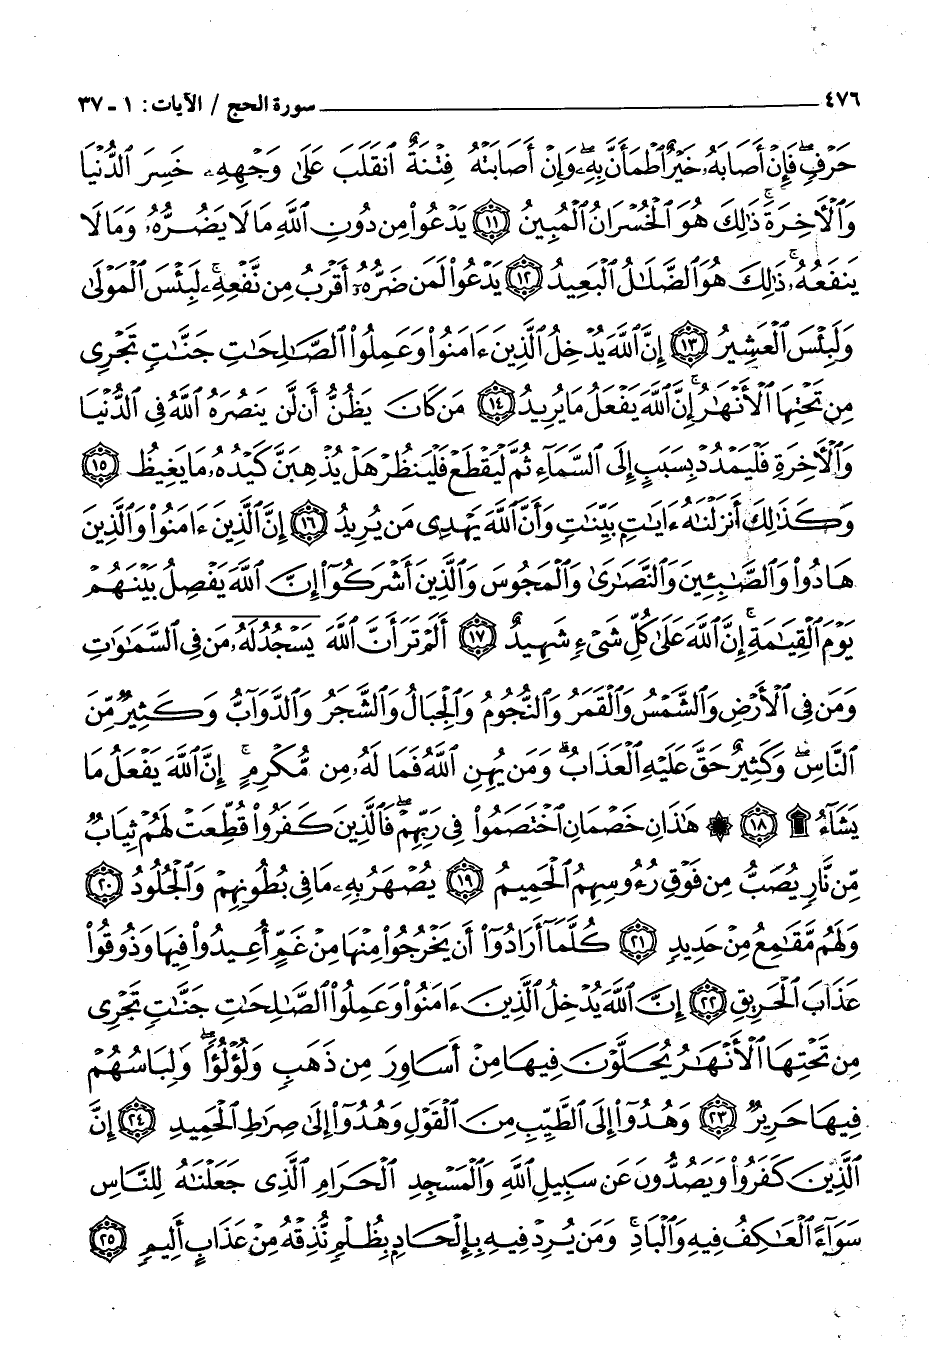 ٤٧٦ ــــــــــ سورة الحج / الآيات: ١ - ٣٧
حَرْفٍۖ فَإِنْ أَصَابَهُۥ خَيْرٌ ٱطْمَأَنَّ بِهِۦۖ وَإِنْ أَصَابَتْهُ فِتْنَةٌ ٱنقَلَبَ عَلَىٰ وَجْهِهِۦ خَسِرَ ٱلدُّنْيَا
وَٱلْأَخِرَةَۚ ذَٰلِكَ هُوَ ٱلْخُسْرَانُ ٱلْمُبِينُ ﴿١١﴾ يَدْعُوا۟ مِن دُونِ ٱللَّهِ مَا لَا يَضُرُّهُۥ وَمَا لَا
يَنفَعُهُۥۚ ذَٰلِكَ هُوَ ٱلضَّلَٰلُ ٱلْبَعِيدُ ﴿١٢﴾ يَدْعُوا۟ لَمَن ضَرُّهُۥٓ أَقْرَبُ مِن نَّفْعِهِۦۚ لَبِئْسَ ٱلْمَوْلَىٰ
وَلَبِئْسَ ٱلْعَشِيرُ ﴿١٣﴾ إِنَّ ٱللَّهَ يُدْخِلُ ٱلَّذِينَ ءَامَنُوا۟ وَعَمِلُوا۟ ٱلصَّٰلِحَٰتِ جَنَّٰتٍ تَجْرِى
مِن تَحْتِهَا ٱلْأَنْهَٰرُۚ إِنَّ ٱللَّهَ يَفْعَلُ مَا يُرِيدُ ﴿١٤﴾ مَن كَانَ يَظُنُّ أَن لَّن يَنصُرَهُ ٱللَّهُ فِى ٱلدُّنْيَا
وَٱلْأَخِرَةِ فَلْيَمْدُدْ بِسَبَبٍ إِلَى ٱلسَّمَآءِ ثُمَّ لْيَقْطَعْ فَلْيَنظُرْ هَلْ يُذْهِبَنَّ كَيْدُهُۥ مَا يَغِيظُ ﴿١٥﴾
وَكَذَٰلِكَ أَنزَلْنَٰهُ ءَايَٰتٍۭ بَيِّنَٰتٍ وَأَنَّ ٱللَّهَ يَهْدِى مَن يُرِيدُ ﴿١٦﴾ إِنَّ ٱلَّذِينَ ءَامَنُوا۟ وَٱلَّذِينَ
هَادُوا۟ وَٱلصَّٰبِـِٔينَ وَٱلنَّصَٰرَىٰ وَٱلْمَجُوسَ وَٱلَّذِينَ أَشْرَكُوٓا۟ إِنَّ ٱللَّهَ يَفْصِلُ بَيْنَهُمْ
يَوْمَ ٱلْقِيَٰمَةِۚ إِنَّ ٱللَّهَ عَلَىٰ كُلِّ شَىْءٍ شَهِيدٌ ﴿١٧﴾ أَلَمْ تَرَ أَنَّ ٱللَّهَ يَسْجُدُ لَهُۥ مَن فِى ٱلسَّمَٰوَٰتِ
وَمَن فِى ٱلْأَرْضِ وَٱلشَّمْسُ وَٱلْقَمَرُ وَٱلنُّجُومُ وَٱلْجِبَالُ وَٱلشَّجَرُ وَٱلدَّوَآبُّ وَكَثِيرٌ مِّنَ
ٱلنَّاسِۖ وَكَثِيرٌ حَقَّ عَلَيْهِ ٱلْعَذَابُۗ وَمَن يُهِنِ ٱللَّهُ فَمَا لَهُۥ مِن مُّكْرِمٍۚ إِنَّ ٱللَّهَ يَفْعَلُ مَا
يَشَآءُ ۩ ﴿١٨﴾ ۞ هَٰذَانِ خَصْمَانِ ٱخْتَصَمُوا۟ فِى رَبِّهِمْۖ فَٱلَّذِينَ كَفَرُوا۟ قُطِّعَتْ لَهُمْ ثِيَابٌ
مِّن نَّارٍ يُصَبُّ مِن فَوْقِ رُءُوسِهِمُ ٱلْحَمِيمُ ﴿١٩﴾ يُصْهَرُ بِهِۦ مَا فِى بُطُونِهِمْ وَٱلْجُلُودُ ﴿٢٠﴾
وَلَهُم مَّقَٰمِعُ مِنْ حَدِيدٍ ﴿٢١﴾ كُلَّمَآ أَرَادُوٓا۟ أَن يَخْرُجُوا۟ مِنْهَا مِنْ غَمٍّ أُعِيدُوا۟ فِيهَا وَذُوقُوا۟
عَذَابَ ٱلْحَرِيقِ ﴿٢٢﴾ إِنَّ ٱللَّهَ يُدْخِلُ ٱلَّذِينَ ءَامَنُوا۟ وَعَمِلُوا۟ ٱلصَّٰلِحَٰتِ جَنَّٰتٍ تَجْرِى
مِن تَحْتِهَا ٱلْأَنْهَٰرُ يُحَلَّوْنَ فِيهَا مِنْ أَسَاوِرَ مِن ذَهَبٍ وَلُؤْلُؤًاۖ وَلِبَاسُهُمْ
فِيهَا حَرِيرٌ ﴿٢٣﴾ وَهُدُوٓا۟ إِلَى ٱلطَّيِّبِ مِنَ ٱلْقَوْلِ وَهُدُوٓا۟ إِلَىٰ صِرَٰطِ ٱلْحَمِيدِ ﴿٢٤﴾ إِنَّ
ٱلَّذِينَ كَفَرُوا۟ وَيَصُدُّونَ عَن سَبِيلِ ٱللَّهِ وَٱلْمَسْجِدِ ٱلْحَرَامِ ٱلَّذِى جَعَلْنَٰهُ لِلنَّاسِ
سَوَآءً ٱلْعَٰكِفُ فِيهِ وَٱلْبَادِۚ وَمَن يُرِدْ فِيهِ بِإِلْحَادٍۭ بِظُلْمٍ نُّذِقْهُ مِنْ عَذَابٍ أَلِيمٍ ﴿٢٥﴾